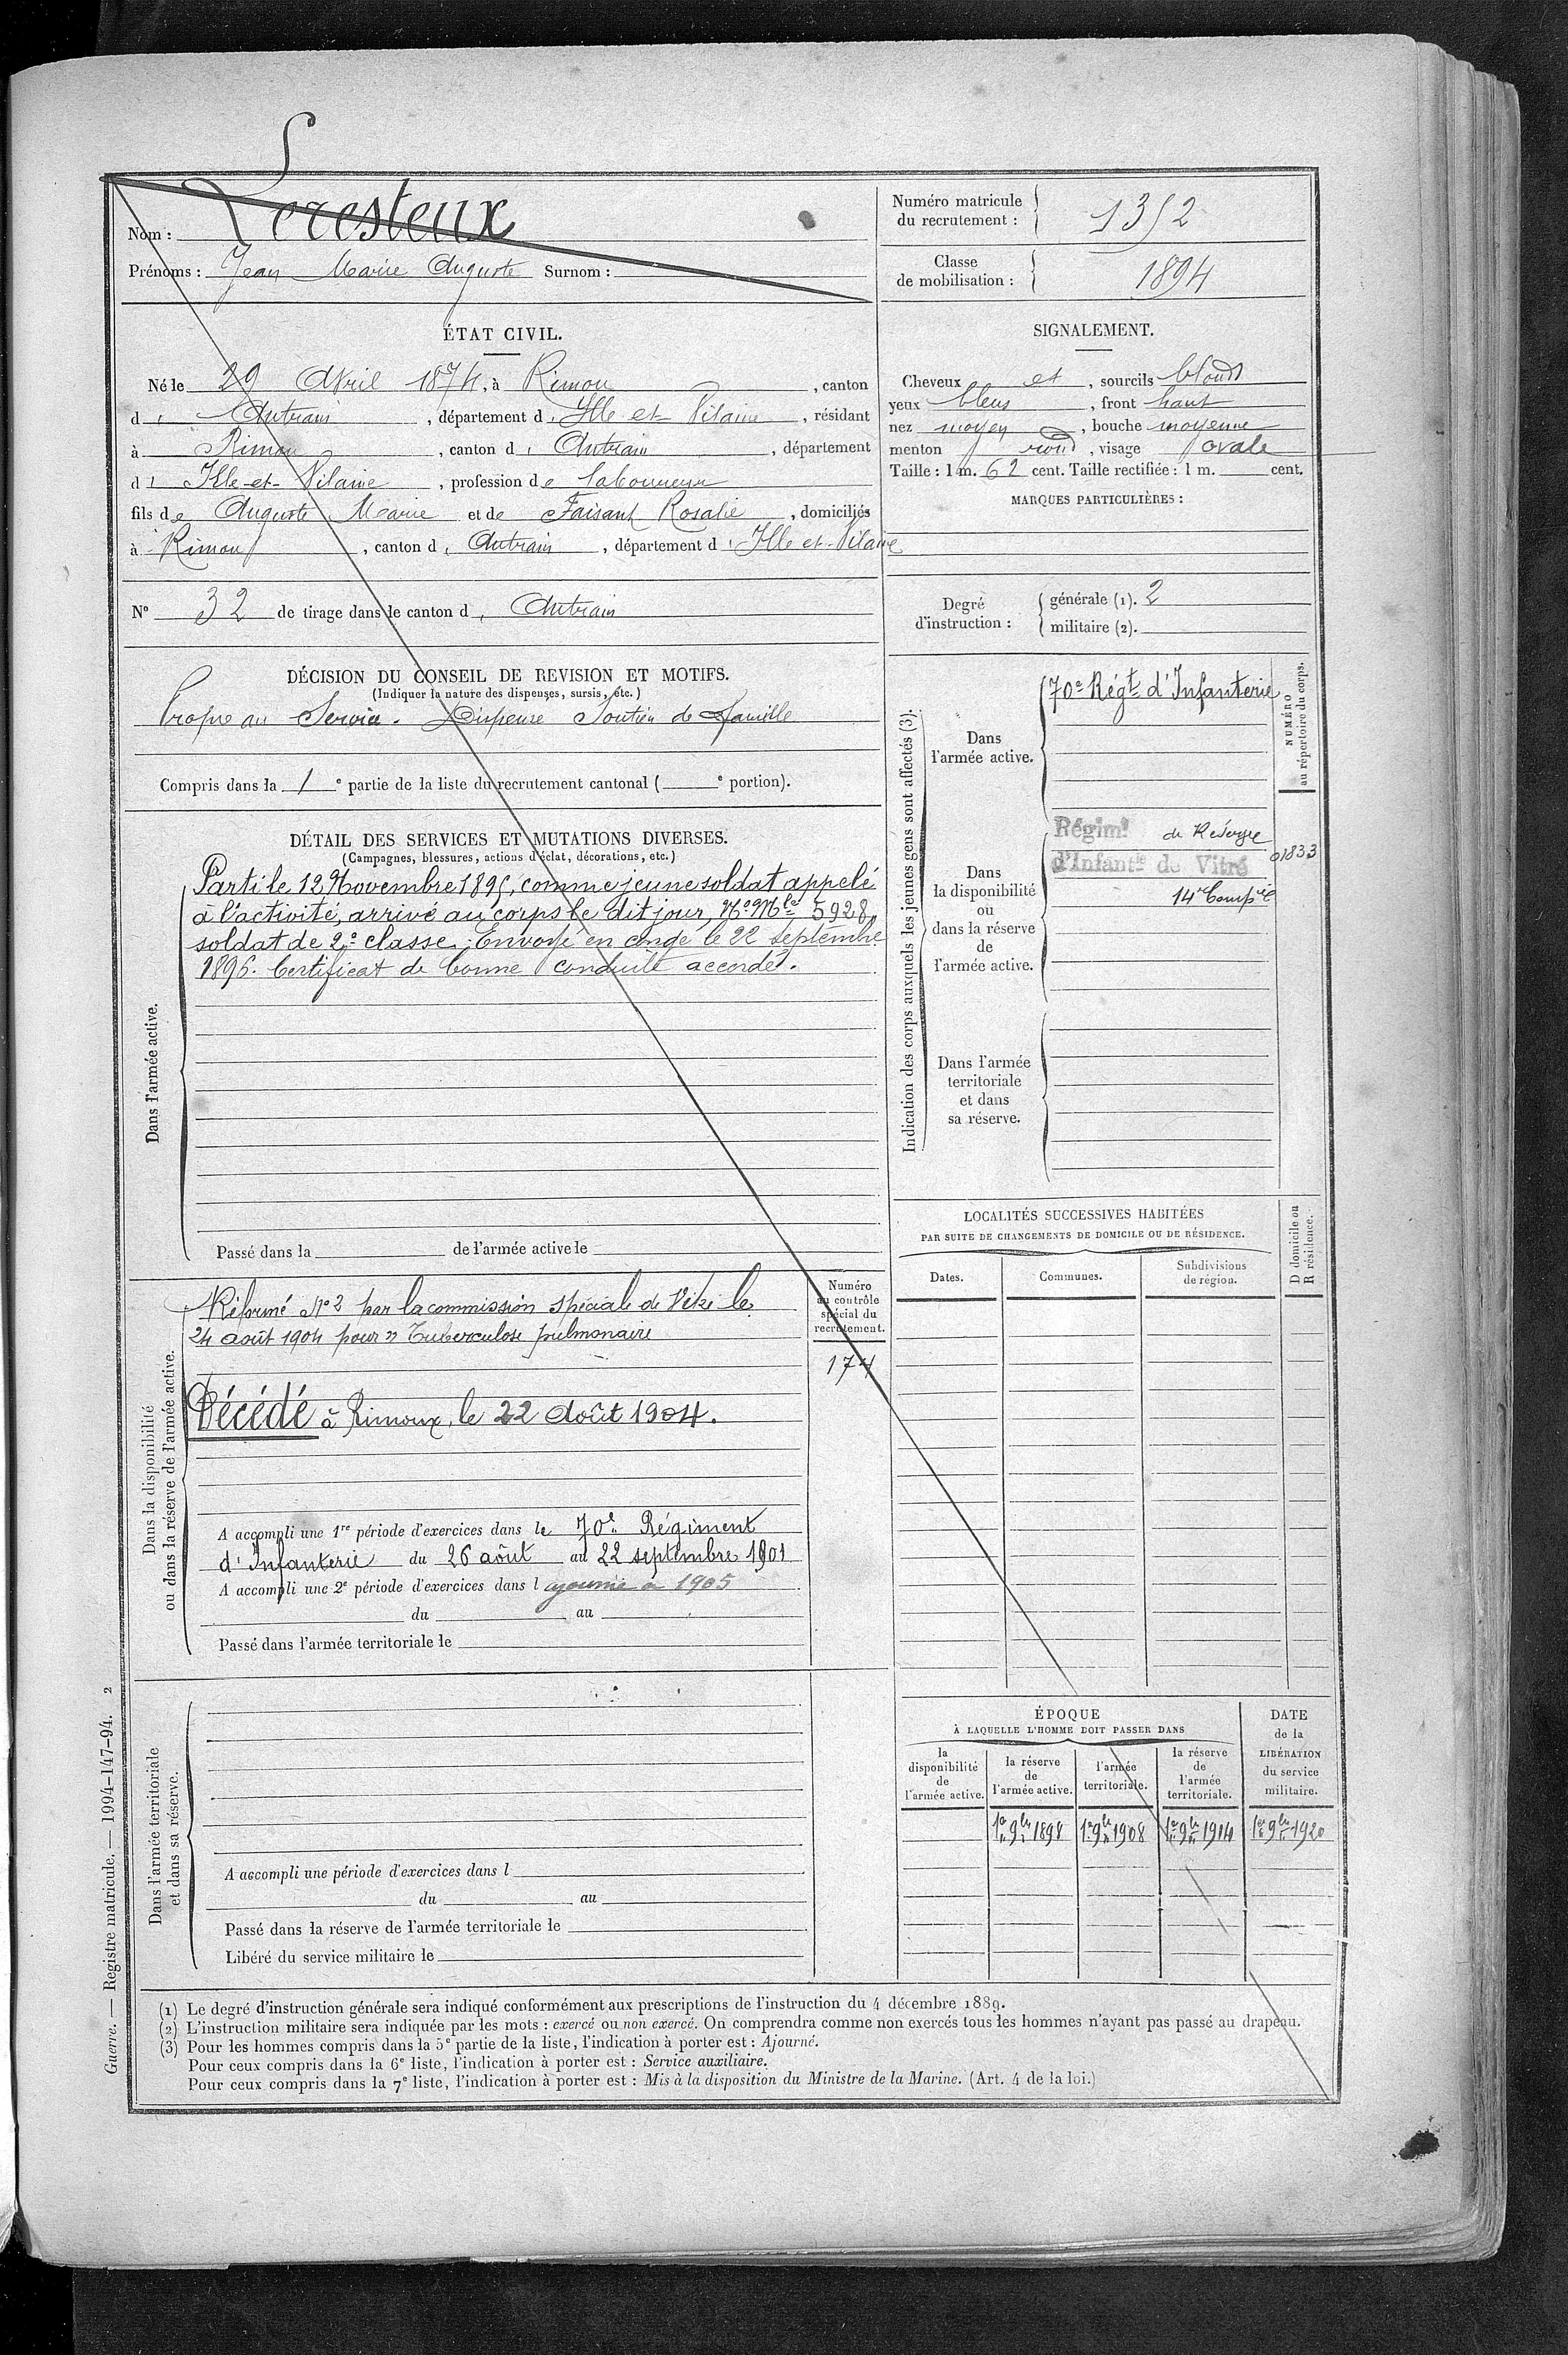 Nom : Leresteux
Prénoms : Jean Marie Auguste Surnom :
Numéro matricule du recrutement : 1352
Classe de mobilisation : 1894
ÉTAT CIVIL.
Né le 29 Avril 1874, à Rimou , canton
d' Antrain , département d' Ille et Vilaine , résidant
à Rimou , canton d' Antrain , département
d' Ille-et-Vilaine , profession de laboureur
fils de Auguste Marie et de Faisant Rosalie , domiciliés
à Rimou , canton d' Antrain , département d' Ille et Vilaine
N° 32 de tirage dans le canton d' Antrain
SIGNALEMENT.
Cheveux et , sourcils blonds
yeux bleus , front haut
nez moyen , bouche moyenne
menton rond , visage ovale
Taille : 1 m. 62 cent. Taille rectifiée : 1 m. cent.
MARQUES PARTICULIÈRES :
Degré d'instruction :
générale (1). 2
militaire (2).
DÉCISION DU CONSEIL DE REVISION ET MOTIFS.
(Indiquer la nature des dispenses, sursis, etc.)
Propre au Service. Dispensé Soutien de famille
Compris dans la 1e partie de la liste du recrutement cantonal ( e portion).
DÉTAIL DES SERVICES ET MUTATIONS DIVERSES.
(Campagnes, blessures, actions d'éclat, décorations, etc.)
Dans l'armée active.
Parti le 12 Novembre 1895, comme jeune soldat appelé
à l'activité, arrivé au corps le dit jour, No Mle 5928,
soldat de 2e classe. Envoyé en congé le 22 septembre
1896. Certificat de bonne conduite accordé.
Passé dans la de l'armée active le
Indication des corps auxquels les jeunes gens sont affectés (3).
NUMÉRO au répertoire du corps.
Dans l'armée active.
70e Régt d'Infanterie
Dans la disponibilité ou dans la réserve de l'armée active.
Régimt de Réserve
d'Infantie de Vitré
01833
14e Compie
Dans l'armée territoriale et dans sa réserve.
LOCALITÉS SUCCESSIVES HABITÉES
PAR SUITE DE CHANGEMENTS DE DOMICILE OU DE RÉSIDENCE.
Dates. Communes. Subdivisions de région. D domicile ou R résidence.
Dans la disponibilité ou dans la réserve de l'armée active.
Numéro au contrôle spécial du recrutement.
174
Réformé No 2 par la commission spéciale de Vitré le
24 août 1904 pour "Tuberculose pulmonaire
Décédé à Rimoux, le 22 Août 1904.
A accompli une 1re période d'exercices dans le 70e Régiment
d'Infanterie du 26 août au 22 septembre 1901
A accompli une 2e période d'exercices dans l ajourné à 1905
du au
Passé dans l'armée territoriale le
Dans l'armée territoriale et dans sa réserve.
A accompli une période d'exercices dans l
du au
Passé dans la réserve de l'armée territoriale le
Libéré du service militaire le
ÉPOQUE
À LAQUELLE L'HOMME DOIT PASSER DANS
la disponibilité de l'armée active.
la réserve de l'armée active.
l'armée territoriale.
la réserve de l'armée territoriale.
DATE de la LIBÉRATION du service militaire.
1er 9bre 1898 1er 9bre 1908 1er 9bre 1914 1er 9bre 1920
(1) Le degré d'instruction générale sera indiqué conformément aux prescriptions de l'instruction du 4 décembre 1889.
(2) L'instruction militaire sera indiquée par les mots : exercé ou non exercé. On comprendra comme non exercés tous les hommes n'ayant pas passé au drapeau.
(3) Pour les hommes compris dans la 5e partie de la liste, l'indication à porter est : Ajourné.
Pour ceux compris dans la 6e liste, l'indication à porter est : Service auxiliaire.
Pour ceux compris dans la 7e liste, l'indication à porter est : Mis à la disposition du Ministre de la Marine. (Art. 4 de la loi.)
Guerre. — Registre matricule. — 1994-147-94. 2